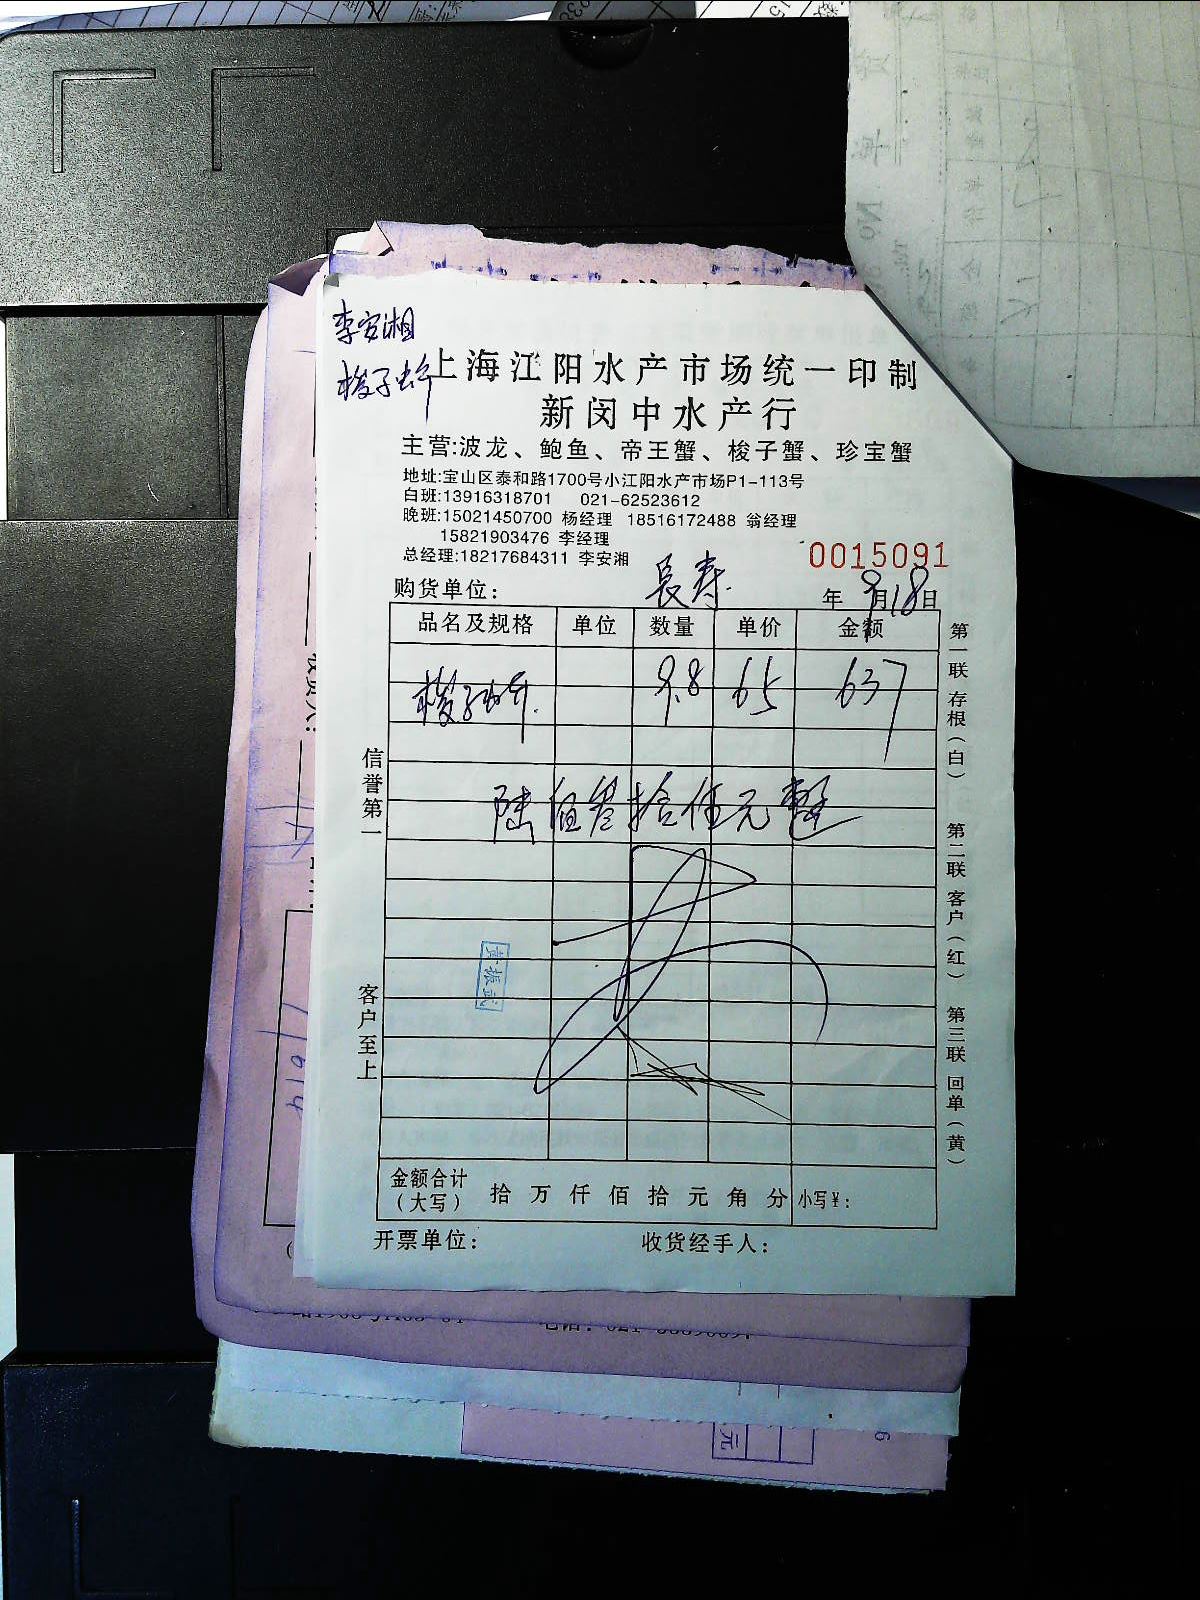 李安湘
梭子蟹
上海江阳水产市场统一印制
新闵中水产行
主营:波龙、鲍鱼、帝王蟹、梭子蟹、珍宝蟹
地址:宝山区泰和路1700号小江阳水产市场P1-113号
白班:13916318701 021-62523612
晚班:15021450700 杨经理 18516172488 翁经理
15821903476 李经理
总经理:18217684311 李安湘
0015091
购货单位: 長寿 年 9月18日
品名及规格 单位 数量 单价 金额
梭子蟹 9.8 65 637
陆佰叁拾 元整
信誉第一
客户至上
第一联 存根(白)
第二联 客户(红)
第三联 回单(黄)
金额合计(大写) 拾 万 仟 佰 拾 元 角 分 小写¥:
开票单位: 收货经手人: